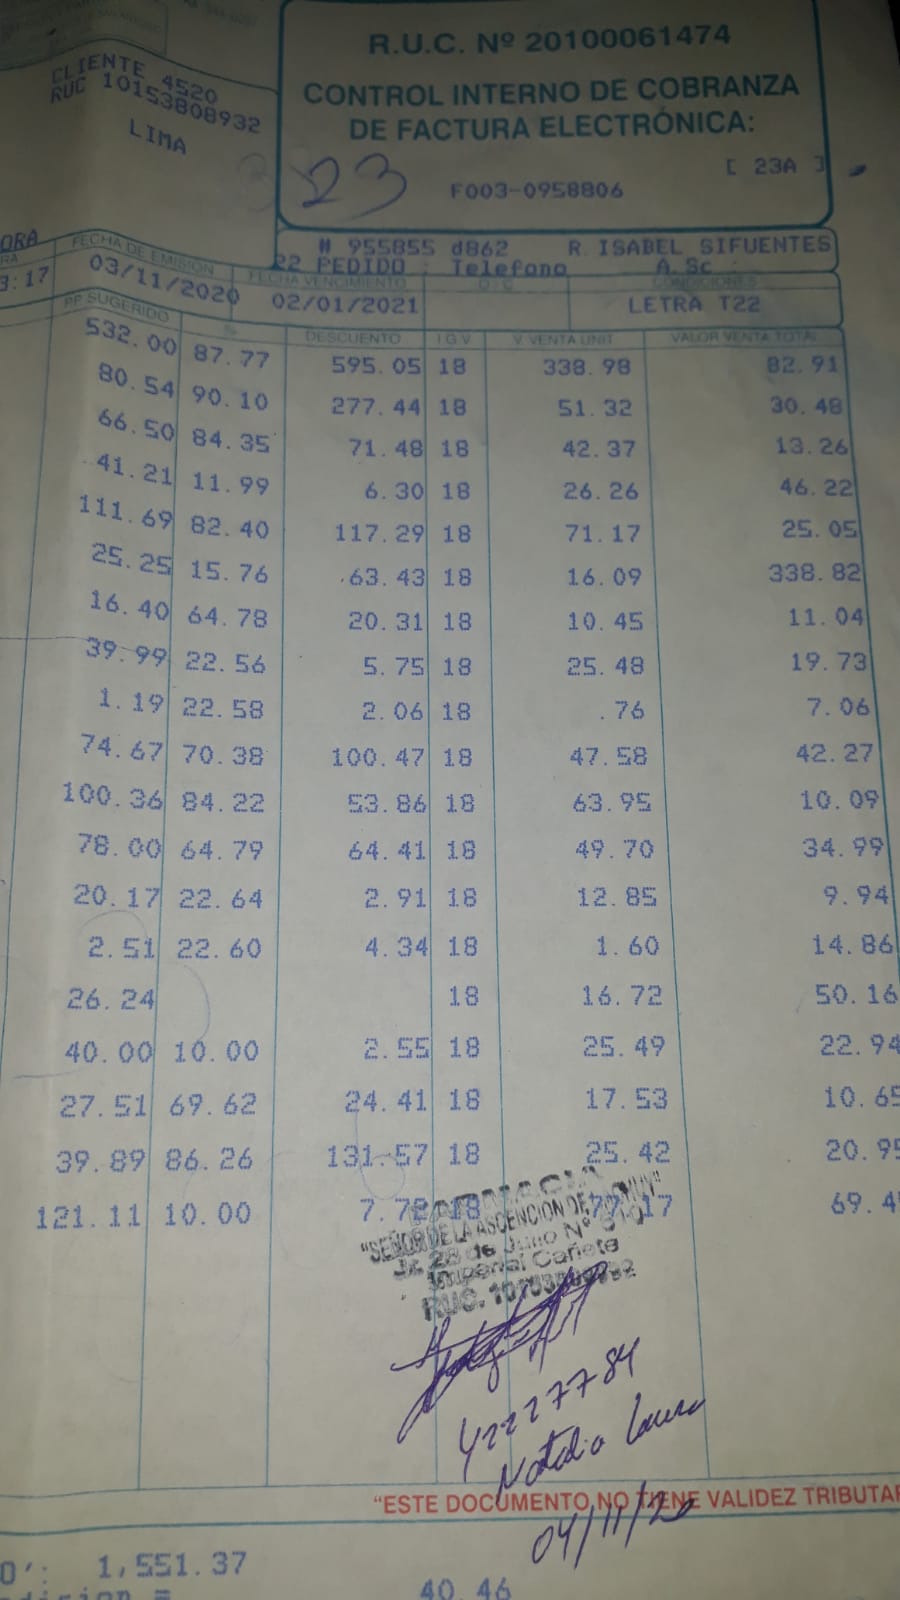 R.U.C. Nº 20100061474
CONTROL INTERNO DE COBRANZA
DE FACTURA ELECTRÓNICA:
[ 23A ]
F003-0958806
23
CLIENTE 4520
RUC 10153808932
LIMA
# 955855 d862 R. ISABEL SIFUENTES
22 PEDIDO : Telefono A. Sc
ORA
RA FECHA DE EMISION FECHA VENCIMIENTO O / C CONDICIONES
3:17 03/11/2020 02/01/2021 LETRA T22
PP SUGERIDO % DESCUENTO I G V V. VENTA UNIT VALOR VENTA TOTAL
532.00 87.77 595.05 18 338.98 82.91
80.54 90.10 277.44 18 51.32 30.48
66.50 84.35 71.48 18 42.37 13.26
41.21 11.99 6.30 18 26.26 46.22
111.69 82.40 117.29 18 71.17 25.05
25.25 15.76 63.43 18 16.09 338.82
16.40 64.78 20.31 18 10.45 11.04
39.99 22.56 5.75 18 25.48 19.73
1.19 22.58 2.06 18 .76 7.06
74.67 70.38 100.47 18 47.58 42.27
100.36 84.22 53.86 18 63.95 10.09
78.00 64.79 64.41 18 49.70 34.99
20.17 22.64 2.91 18 12.85 9.94
2.51 22.60 4.34 18 1.60 14.86
26.24 18 16.72 50.16
40.00 10.00 2.55 18 25.49 22.94
27.51 69.62 24.41 18 17.53 10.65
39.89 86.26 131.57 18 25.42 20.95
121.11 10.00 7.72 18 77.17 69.4
FARMACIA
"SEÑOR DE LA ASCENCION DE
Jr. 28 de Julio Nº 610
Imperial Cañete
RUC.
42227784
Natalia Laura
04/11/20
"ESTE DOCUMENTO NO TIENE VALIDEZ TRIBUTAR
O': 1,551.37
40.46